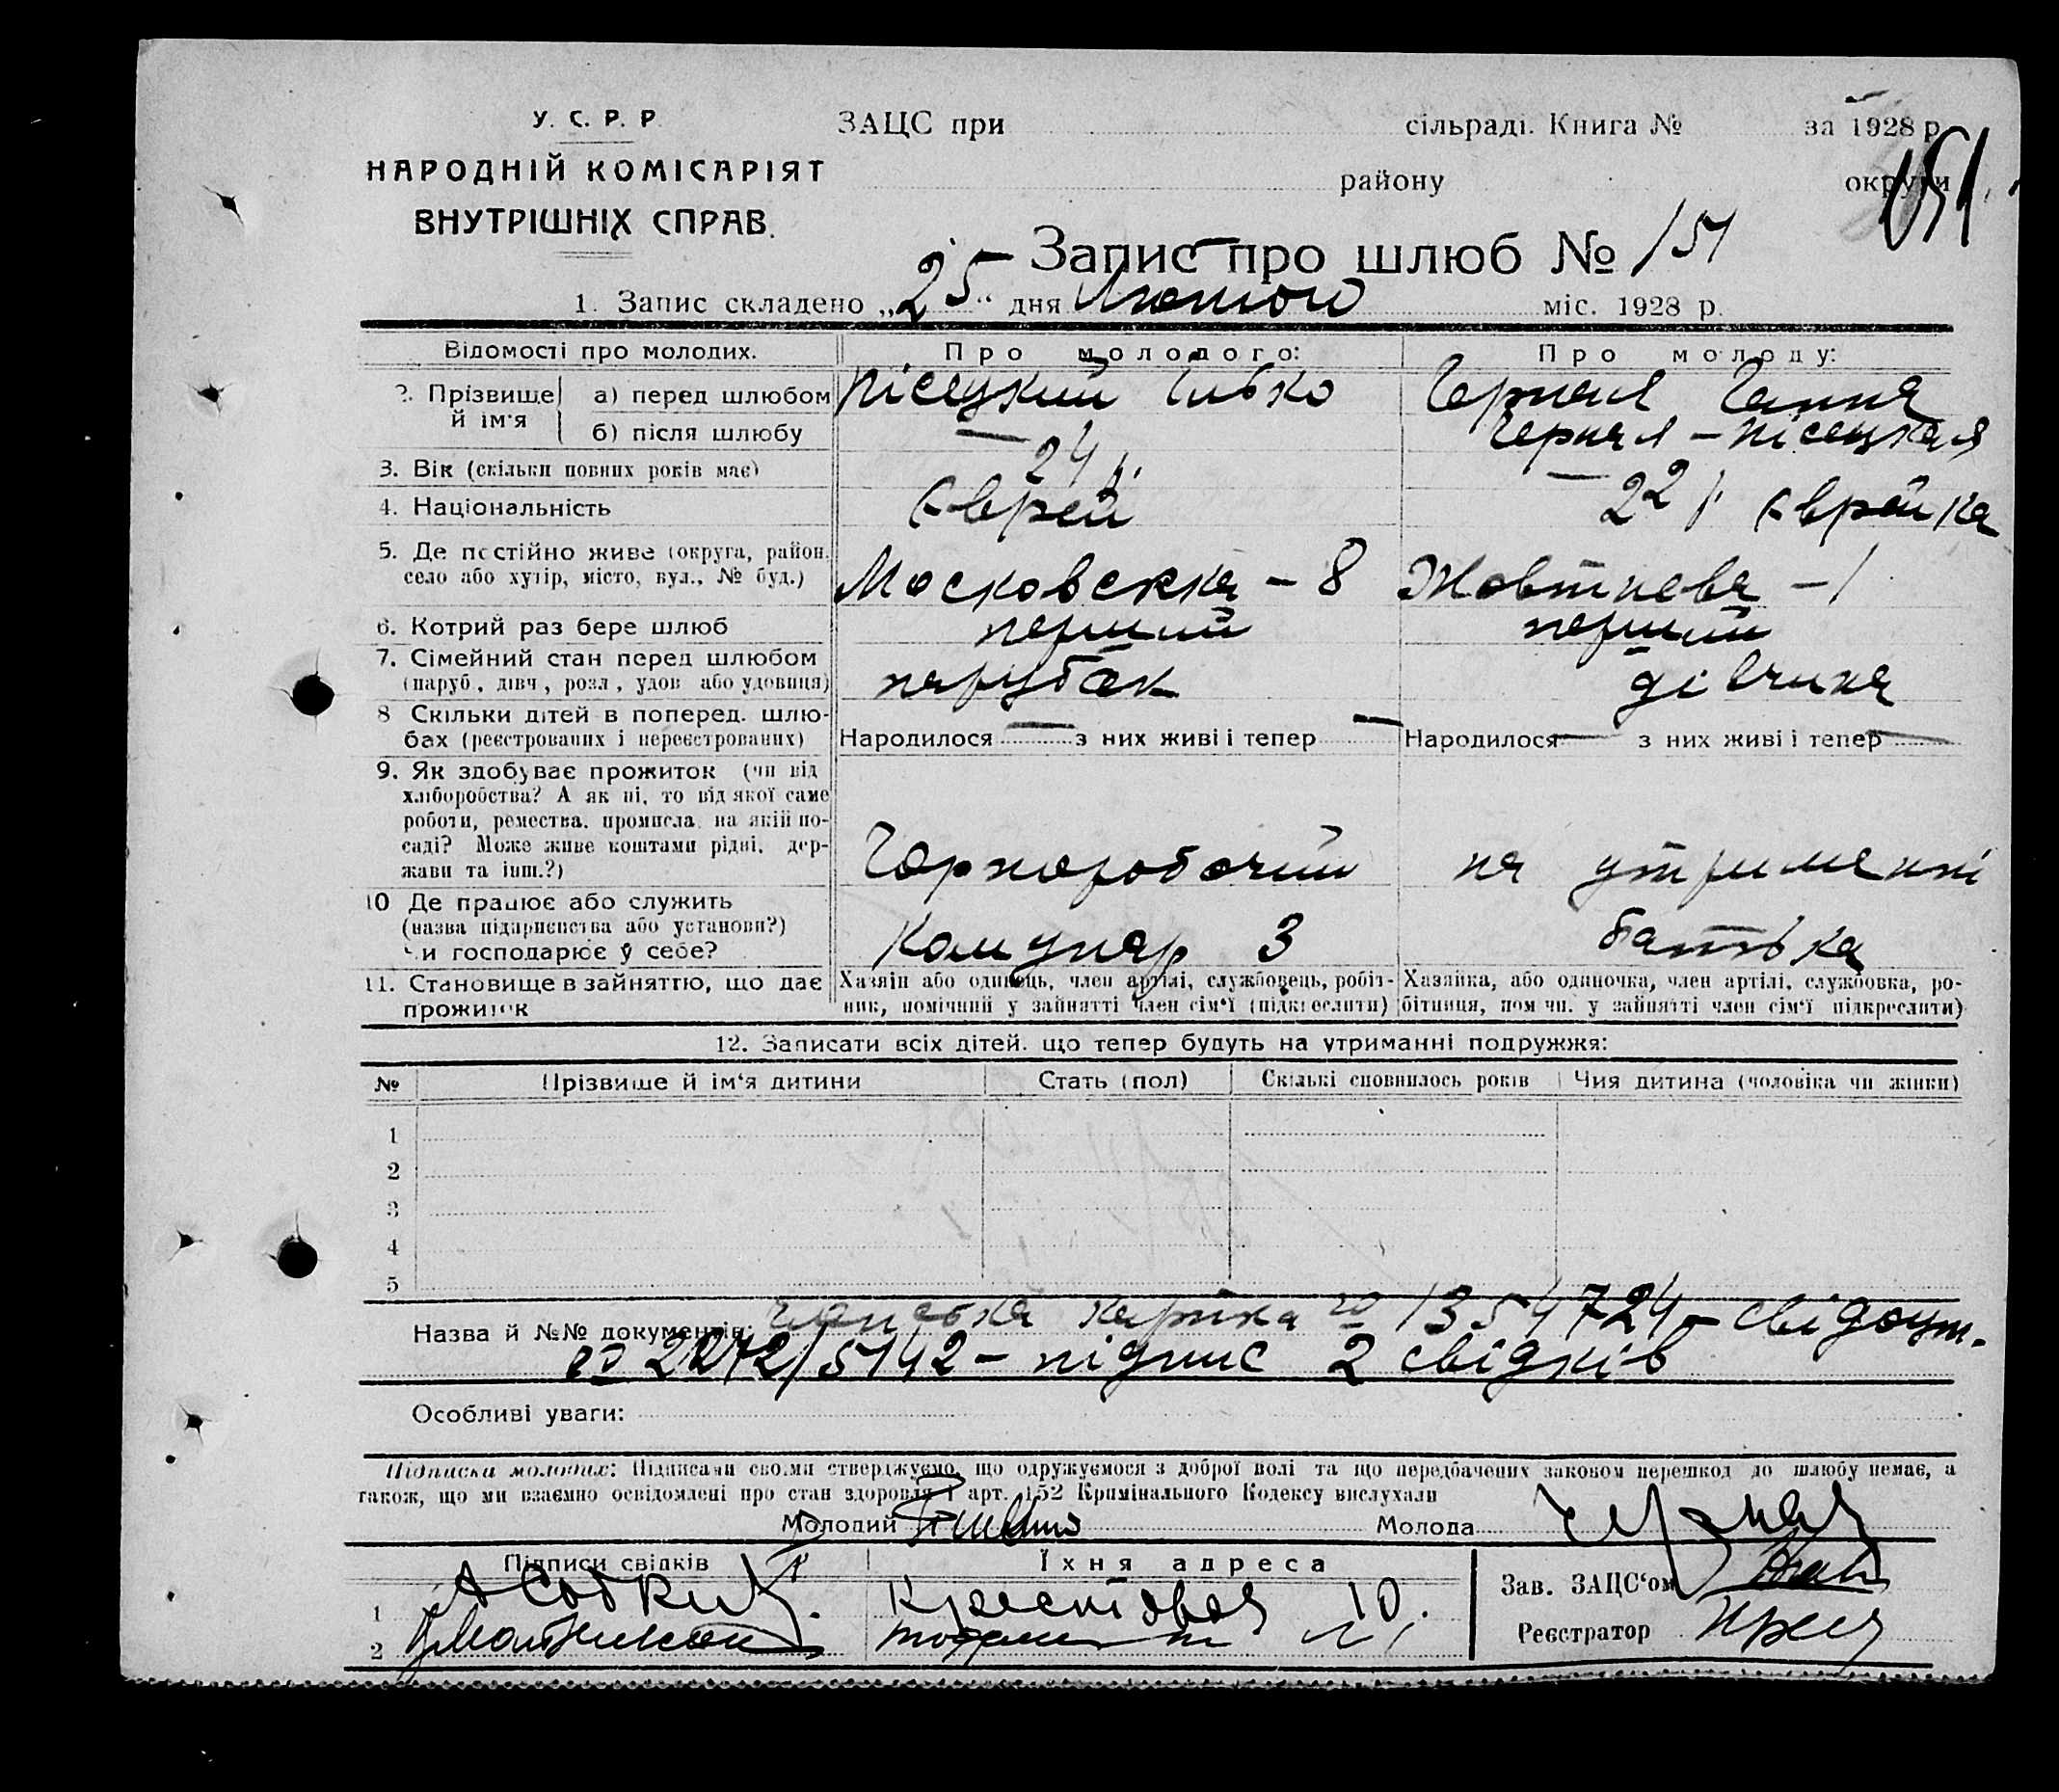 У. С. Р. Р.
НАРОДНІЙ КОМІСАРІЯТ
ВНУТРІШНІХ СПРАВ.
ЗАЦС при сільраді. Книга № за 1928 р.
району округи
151
Запис про шлюб № 151
1. Запис складено „25“ дня Лютого міс. 1928 р.
Відомості про молодих. Про молодого: Про молоду:
2. Прізвище й ім'я а) перед шлюбом Пісецкий Черная Ганна
б) після шлюбу — Черная – Пісецкая
3. Вік (скільки повних років має) 24 р. — 22 р.
4. Національність Єврей Єврейка
5. Де постійно живе (округа, район, село або хутір, місто, вул., № буд.) Московська – 8 Жовтнева – 1
6. Котрий раз бере шлюб перший перший
7. Сімейний стан перед шлюбом (паруб., дівч., розл., удов. або удовиця) парубок дівчина
8 Скільки дітей в поперед. шлюбах (реєстрованих і нереєстрованих) Народилося — з них живі і тепер — Народилося — з них живі і тепер —
9. Як здобуває прожиток (чи від хліборобства? А як ні, то від якої саме роботи, ремества, промисла, на якій посаді? Може живе коштами рідні, держави та інш.?) Чорноробочий на утриманні
10 Де працює або служить (назва підприємства або установи?) Чи господарює у себе? Комунар 3 батька
11. Становище в зайняттю, що дає прожиток
Хазяїн або одинець, член артілі, службовець, робітник, помічний у зайнятті член сім'ї (підкреслити)
Хазяйка, або одиночка, член артілі, службовка, робітниця, помічн. у зайнятті член сім'ї підкреслити)
12. Записати всіх дітей, що тепер будуть на утриманні подружжя:
№ Прізвище й ім'я дитини Стать (пол) Скількі сповнилось років Чия дитина (чоловіка чи жінки)
1
2
3
4
5
Назва й №№ документів: картка № 1354724 – свідоцт.
№ 2272/5142 – підпис 2 свідків
Особливі уваги:
Підписка молодих: Підписами своїми стверджуємо, що одружуємося з доброї волі та що передбачених законом перешкод до шлюбу немає, а
також, що ми взаємно освідомлені про стан здоровля і арт. 152 Кримінального Кодексу вислухали
Молодий Молода Черная
Підписи свідків Їхня адреса
Зав. ЗАЦС'ом
1 Крестовая 10.
2
Реєстратор